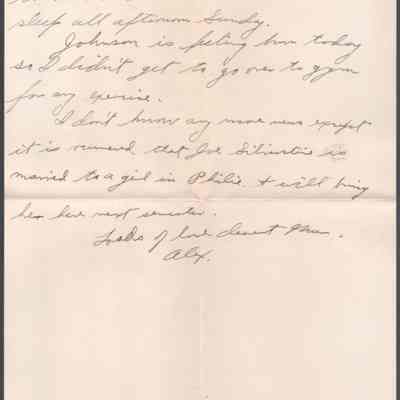 sleep all afternoon Sunday.
Johnson is feeling bum today
so I didn't get to go over to gym
for my exercise.
I don't know any more news except
it is rumored that Joe is
married to a girl in Phila. & will bring
her here next semester.
Loads of love dearest Mum.
Alex.